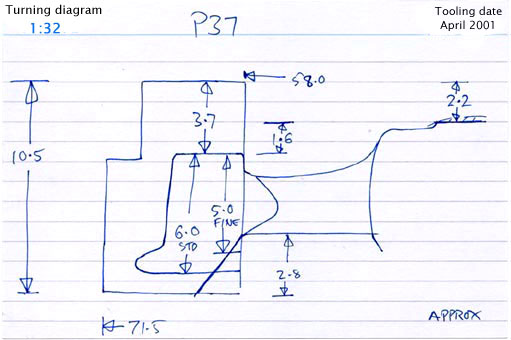 Turning diagram
1:32
P37
Tooling date
April 2001
58.0
2.2
3.7
1.6
10.5
5.0
FINE
6.0
STD
2.8
71.5
APPROX